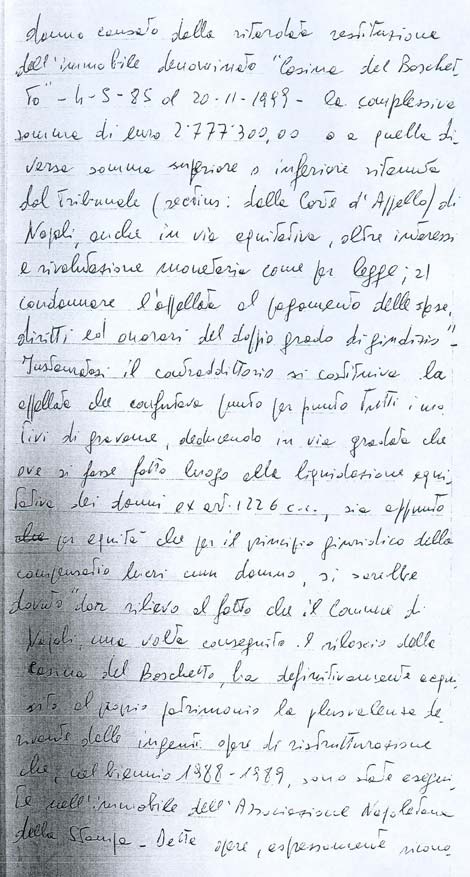 danno causato dalla ritardata restituzione
dell'immobile denominato "Casina del Boschet
to" - 4-5-85 al 20-11-1999 - la complessiva
somma di euro 2'777'300,00 o a quella di-
versa somma superiore o inferiore ritenuta
dal Tribunale (rectius: dalla Corte d'Appello) di
Napoli, anche in via equitativa, oltre interessi
e rivalutazione monetaria come per legge; 2)
condannare l'appellata al pagamento delle spese,
diritti ed onorari del doppio grado di giudizio"-
Instauratosi il contraddittorio si costituiva la
appellata che confutava punto per punto tutti i mo
tivi di gravame, deducendo in via gradata che
ove si fosse fatto luogo alla liquidazione equi
tativa dei danni ex art. 1226 c.c., sia appunto
per equità che per il principio giuridico della
compensatio lucri cum damno, si sarebbe
dovuto "dar rilievo al fatto che il Comune di
Napoli, una volta conseguito il rilascio della
Casina del Boschetto, ha definitivamente acqui
sito al proprio patrimonio la plusvalenza de
rivante dalle ingenti opere di ristrutturazione
che, nel biennio 1988-1989, sono state esegui
te nell'immobile dell'Associazione Napoletana
della Stampa - Dette opere, espressamente ricono